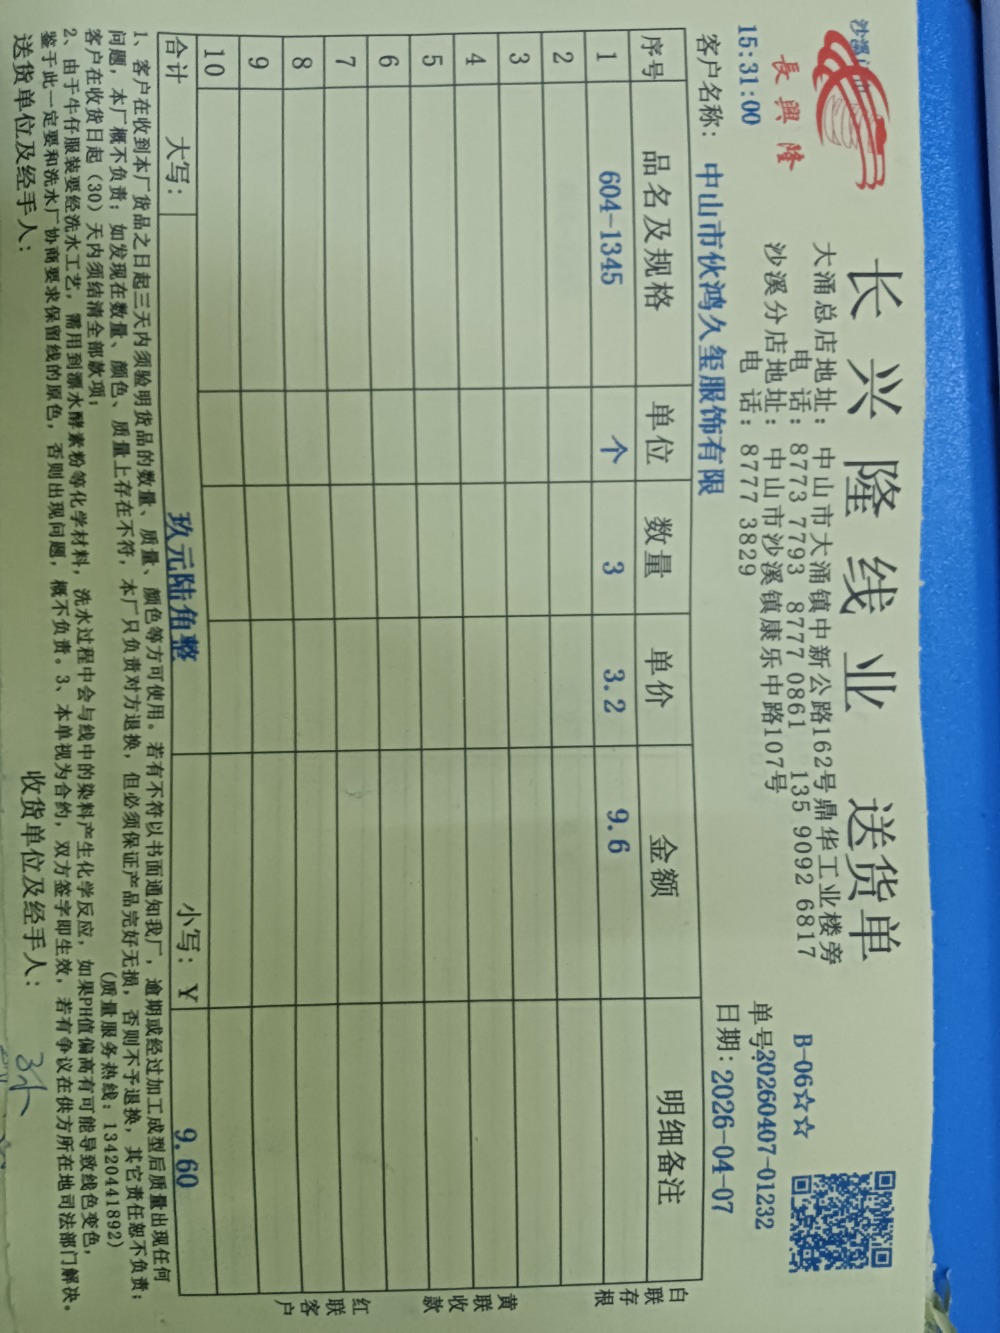 長興隆
15:31:00
长兴隆线业 送货单
大涌总店地址：中山市大涌镇中新公路162号鼎华工业楼旁
电 话：8773 7793 8777 0861 135 9092 6817
沙溪分店地址：中山市沙溪镇康乐中路107号
电 话：8777 3829
B-06☆☆
单号:20260407-01232
客户名称：中山市伙鸿久玺服饰有限
日期：2026-04-07
序号 品名及规格 单位 数量 单价 金额 明细备注
1 604-1345 个 3 3.2 9.6
2
3
4
5
6
7
8
9
10
合计 大写：玖元陆角整 小写：¥ 9.60
白联存根
黄联收款
红联客户
1、客户在收到本厂货品之日起三天内须验明货品的数量、质量、颜色等方可使用。若有不符以书面通知我厂，逾期或经过加工成型后质量出现任何
问题，本厂概不负责；如发现在数量、颜色、质量上存在不符，本厂只负责对方退换，但必须保证产品完好无损，否则不予退换，其它责任恕不负责；
客户在收货日起（30）天内须结清全部款项； （质量服务热线：13420441892）
2、由于牛仔服装要经洗水工艺，需用到漂水酵素粉等化学材料，洗水过程中会与线中的染料产生化学反应，如果PH值偏高有可能导致线色变色，
鉴于此一定要和洗水厂协商要求保留线的原色，否则出现问题，概不负责。3、本单视为合约，双方签字即生效，若有争议在供方所在地司法部门解决。
送货单位及经手人： 收货单位及经手人：